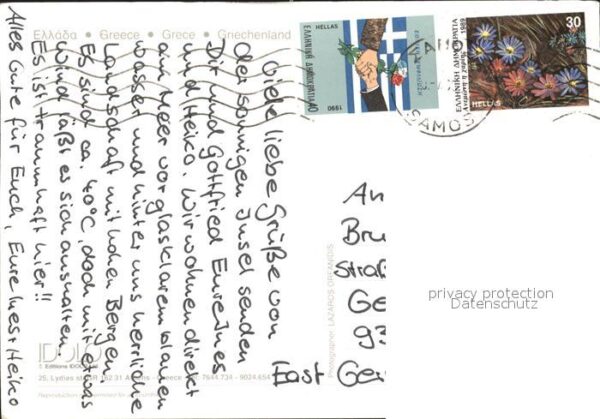 Ελλάδα • Greece • Grèce • Griechenland
Viele liebe Grüße von
der sonnigen Insel senden
Dir und Gottfried Eure Ines
und Heiko. Wir wohnen direkt
am Meer vor glasklarem blauen
Wasser und hinter uns herrliche
Landschaft mit hohen Bergen.
Es sind ca. 40°C, doch mit etwas
Wind läßt es sich aushalten.
Es ist traumhaft hier!!
Alles Gute für Euch, Eure Ines + Heiko
ΕΛΛΗΝΙΚΗ ΔΗΜΟΚΡΑΤΙΑ
HELLAS
1990
40
30
ΕΛΛΗΝΙΚΗ ΔΗΜΟΚΡΑΤΙΑ
1989
HELLAS
SAMOS
An
Bru
Straß
Ge
93
East Ge
Photographer: LAZAROS ORFANIDIS
IDOLO
Editions IDOLO
25, Lydias
Greece
privacy protection
Datenschutz